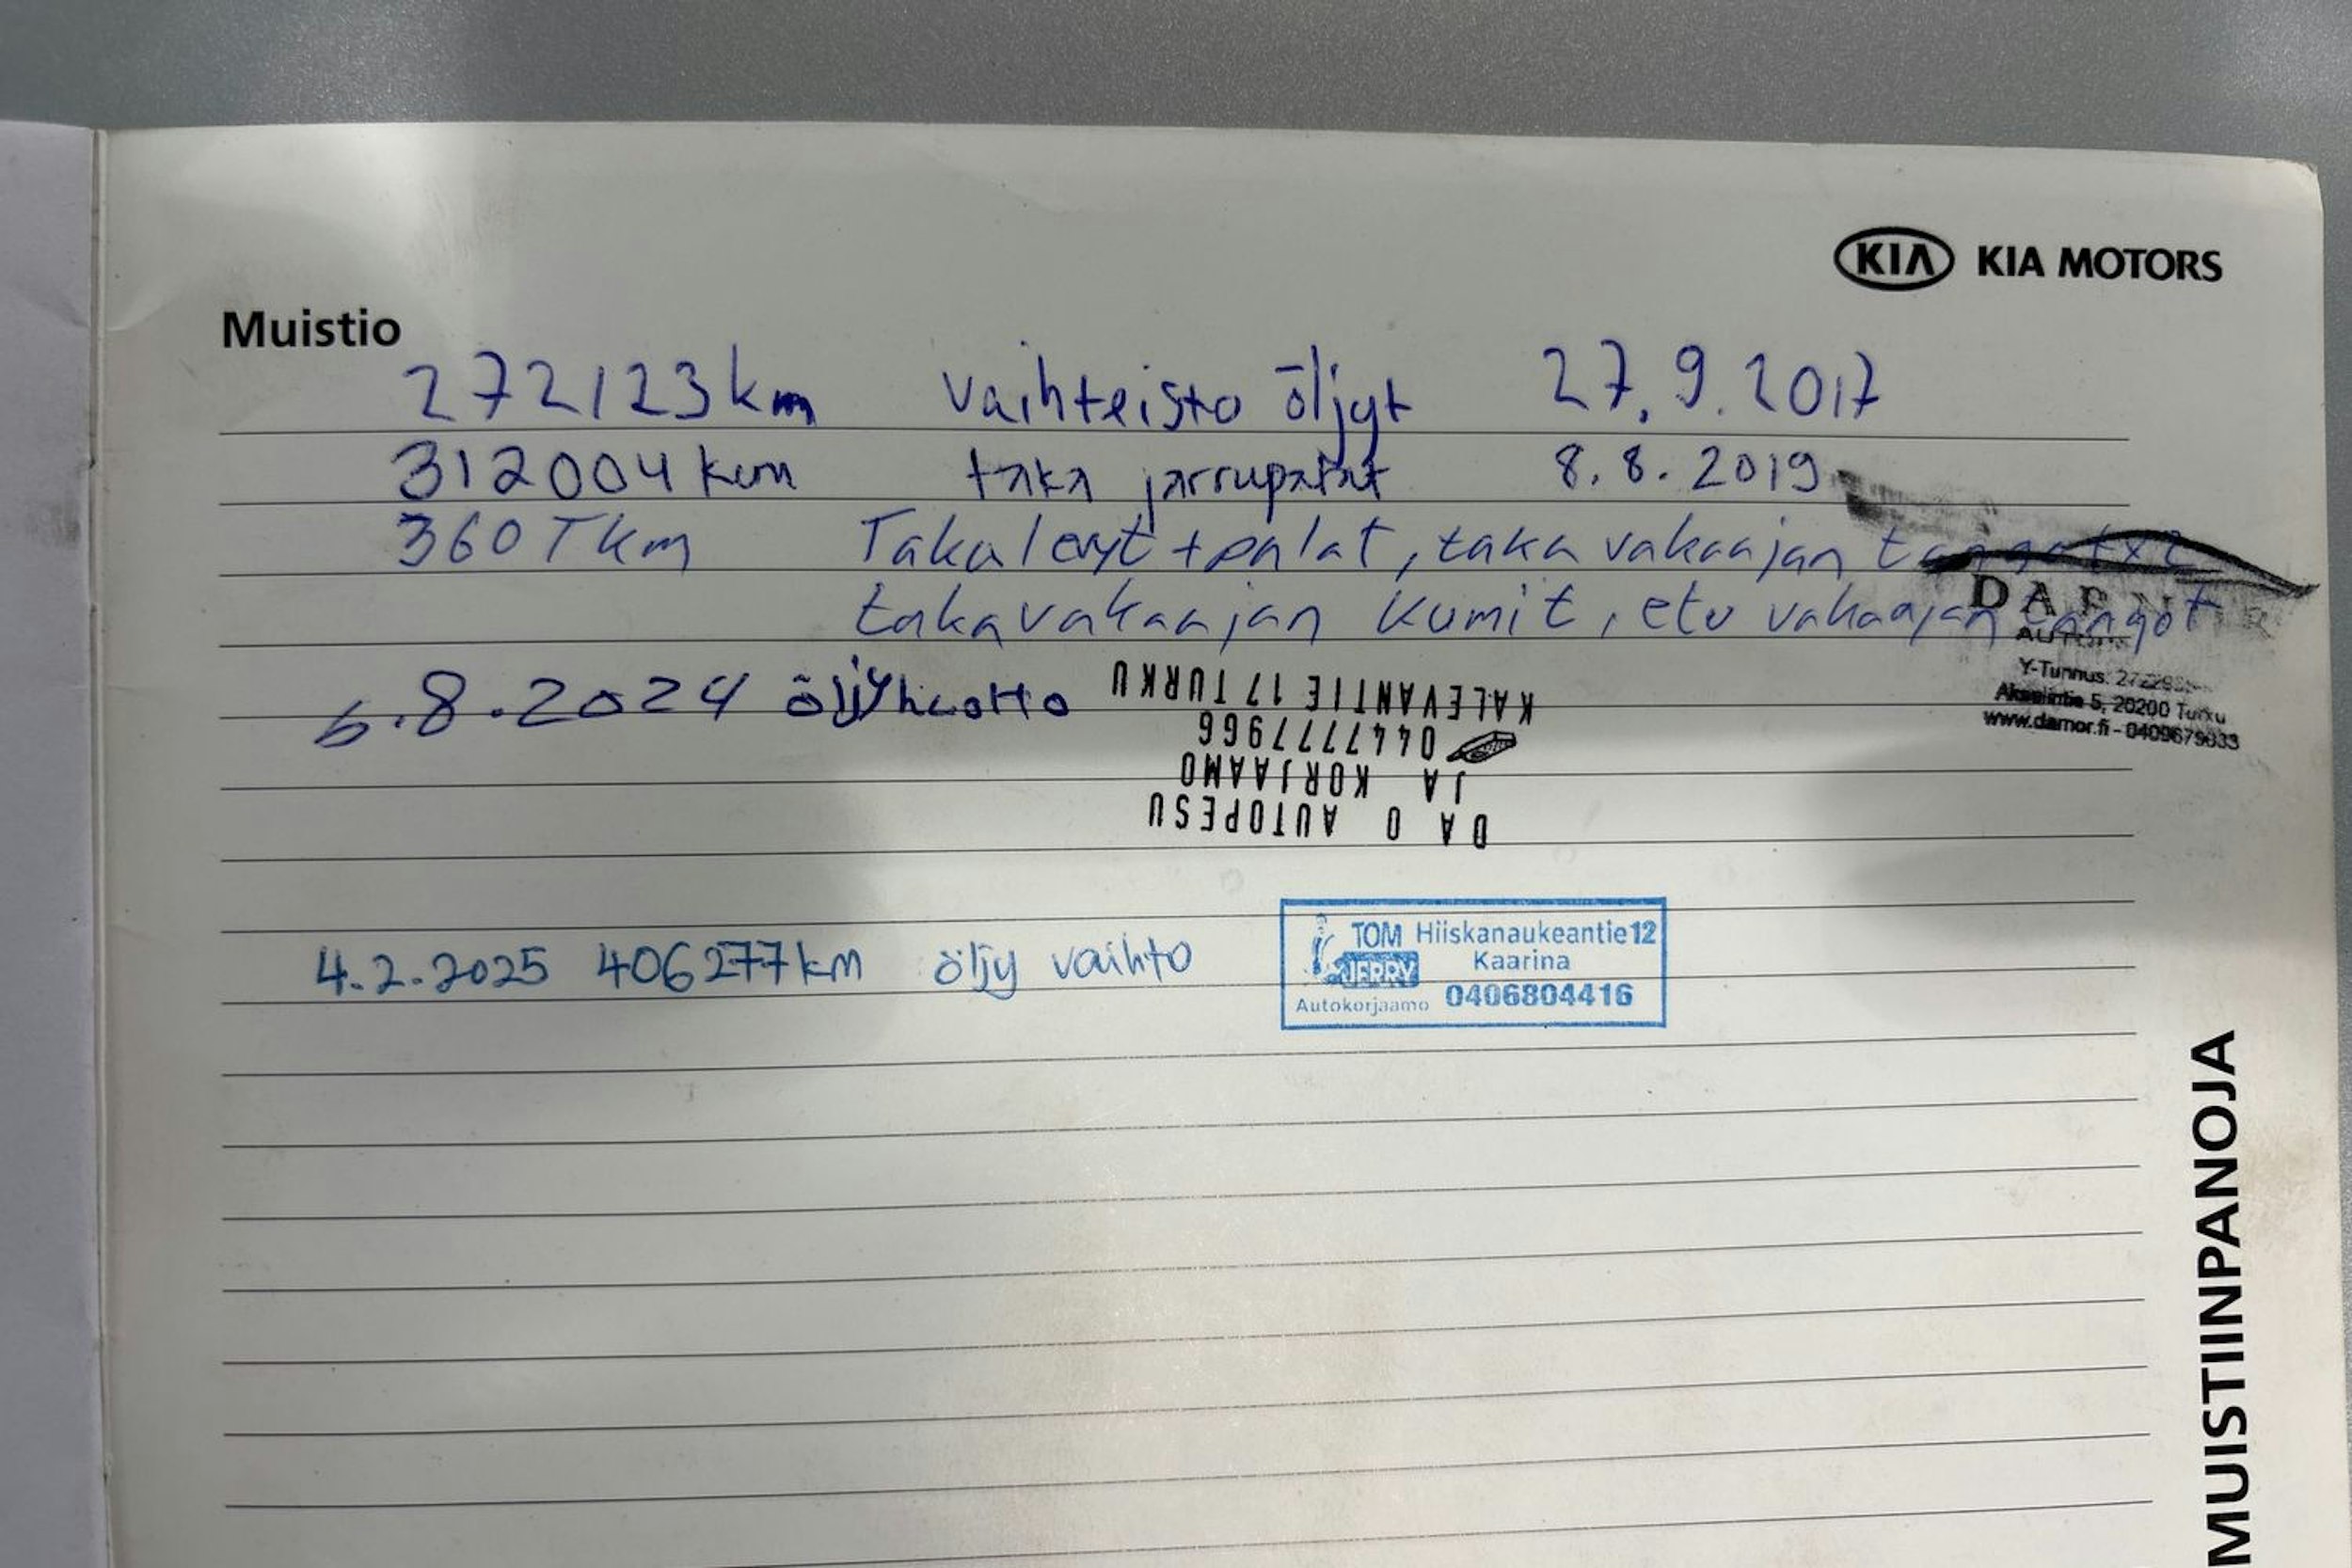 KIA KIA MOTORS
Muistio
272123km vaihteisto öljyt 27.9.2017
312004 km taka jarrupalat 8.8.2019
360 Tkm Takalevyt + palat, taka vakaajan tangot x2
takavakaajan kumit, etu vakaajan tangot
DA
Y-Tunnus.
Akselintie 5, 20200 Turku
www.damor.fi - 0409679033
6.8.2024 öljyhuolto
DA O AUTOPESU
JA KORJAAMO
044777966
KALEVANTIE 17 TURKU
4.2.2025 406277km öljy vaihto
TOM Hiiskanaukeantie12
JERRY Kaarina
Autokorjaamo 0406804416
MUISTIINPANOJA